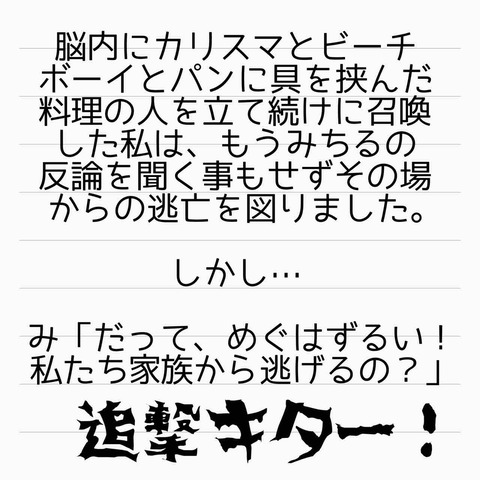 脳内にカリスマとビーチ
ボーイとパンに具を挟んだ
料理の人を立て続けに召喚
した私は、もうみちるの
反論を聞く事もせずその場
からの逃亡を図りました。
しかし…
み「だって、めぐはずるい！
私たち家族から逃げるの？」
追撃キター！